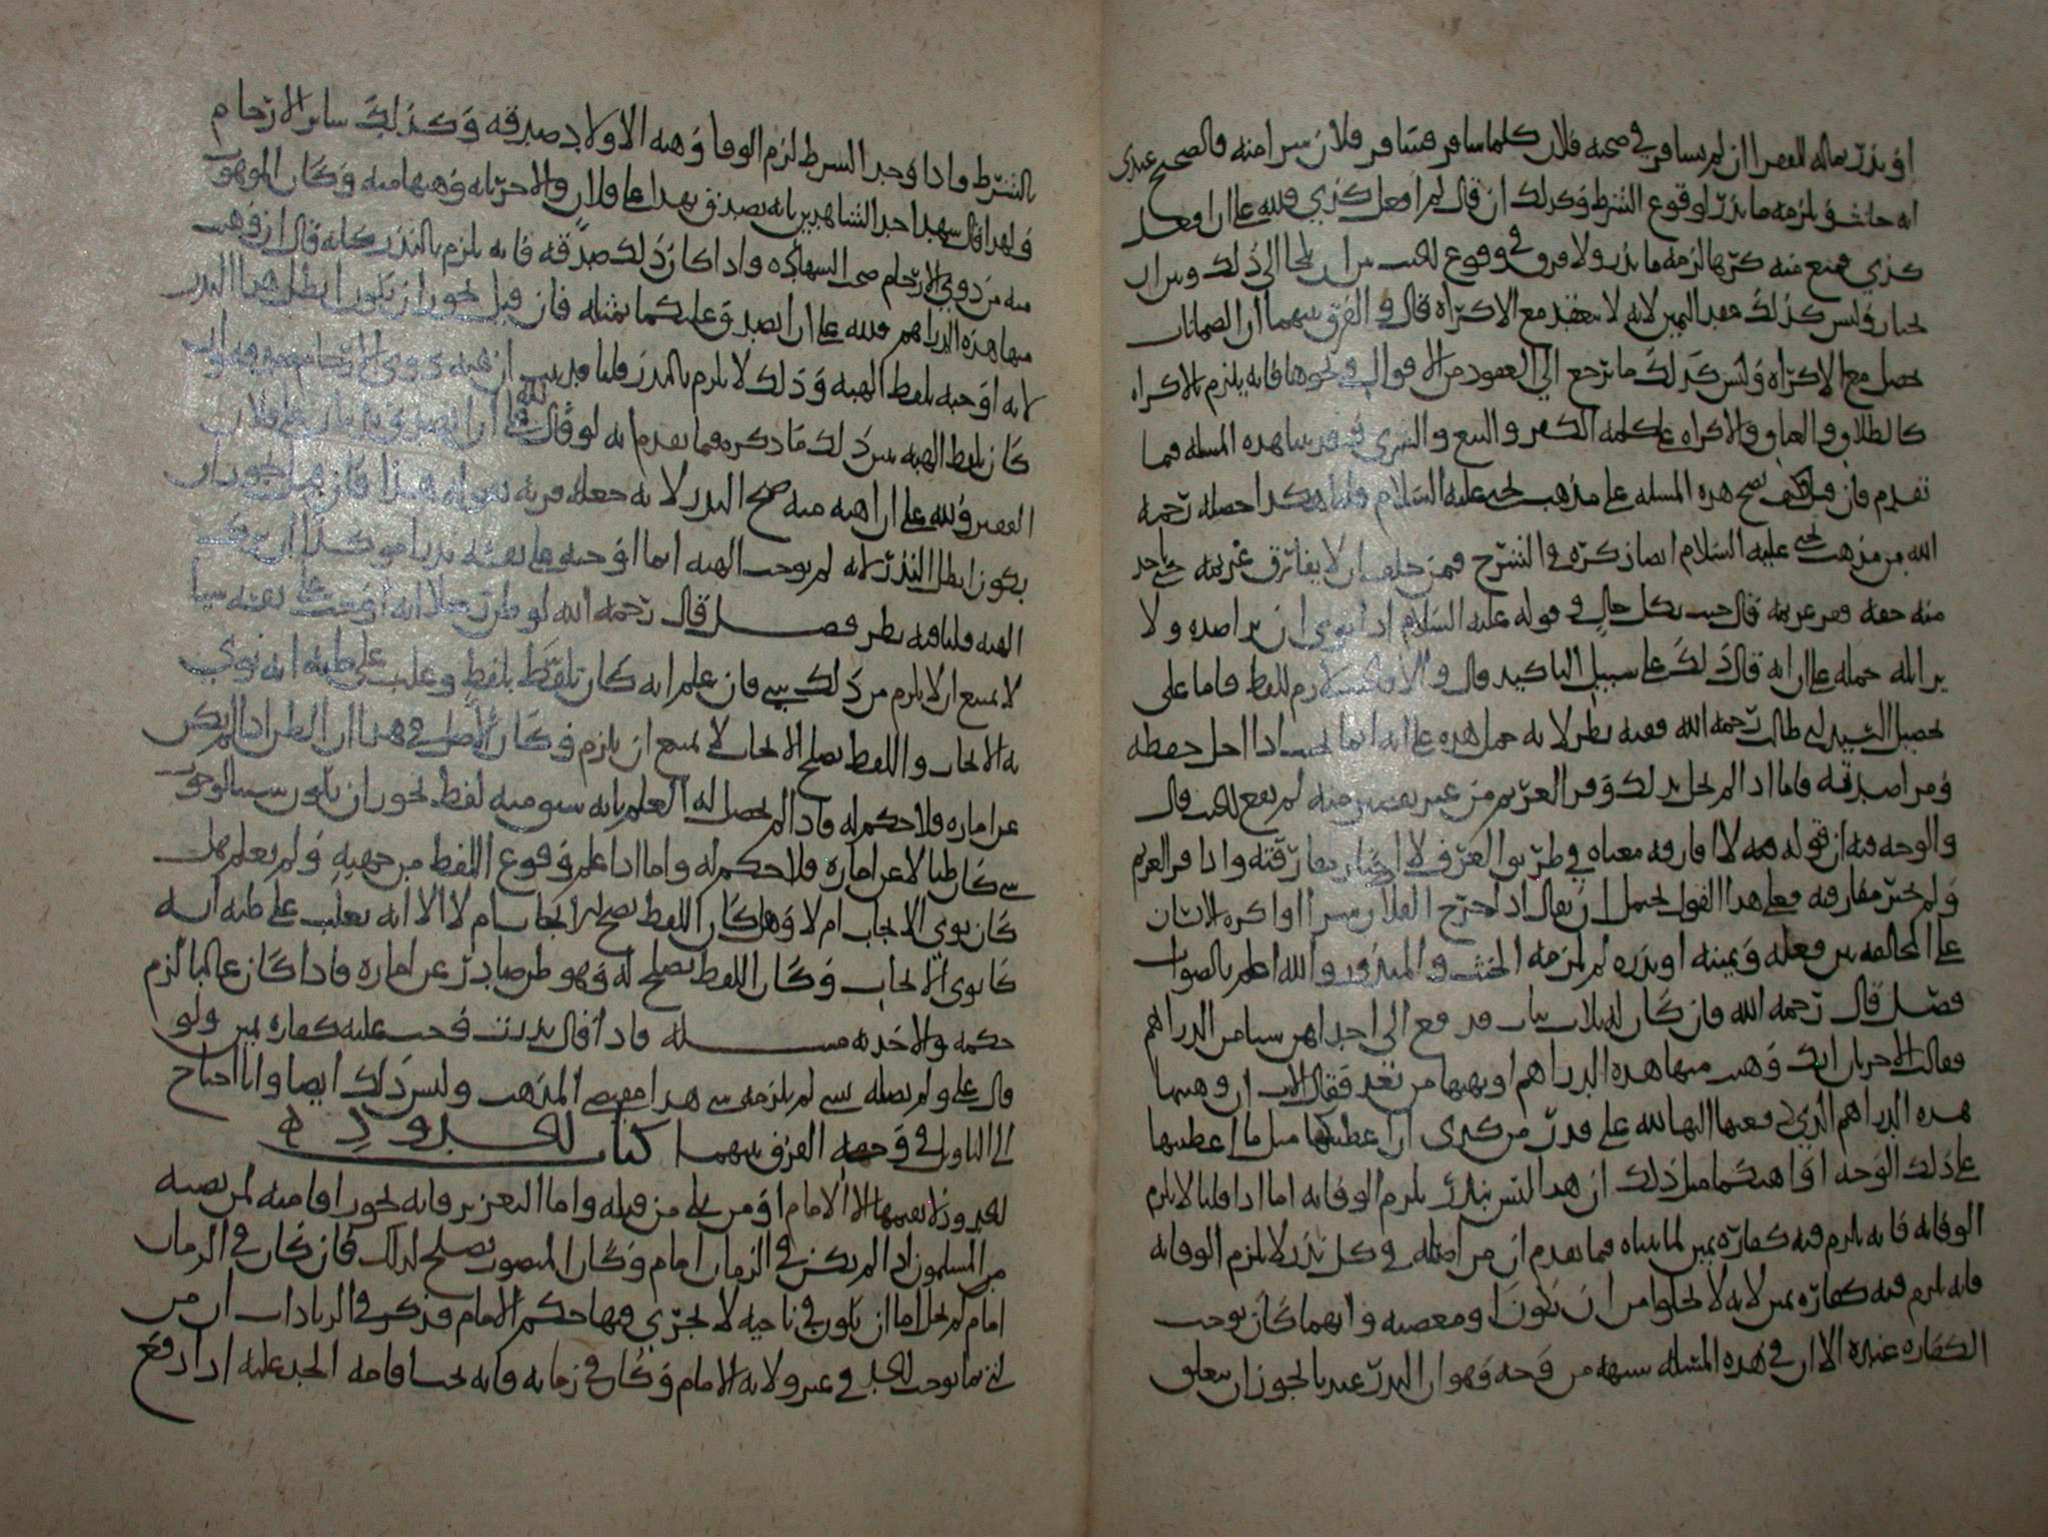 او نذر بماله للفقراان لم يسافر في صحبه فلان كلما سافر فسافر فلان سرا منه فالصحيح عندي
انه حانث ويلزمه ما نذر لوقوع الشرط وكذلك ان قال لم افعل كذي فلله علي ان افعل
كذي فمنع منه كرها لزمه ما نذر ولا فرق في وقوع الحنث بين ان يلجا الى ذلك وبين ان
يختار وليس كذلك عقد اليمين لانه لا ينعقد مع الاكراه قال والفرق بينهما ان الضمانات
تحصل مع الاكراه وليس كذلك ما يرجع الى العقود من الاقوال ونحوها فانه يلزم بالاكراه
كالطلاق والعتاق والاكراه على كلمه الكفر والبيع والشرى وقد بينا هذه المسله فيما
تقدم فان قيل كيف تصح هذه المسله على مذهب يحيى عليه السلام قلنا هكذا حصله رحمه
الله من مذهب يحيى عليه السلام ايضا ذكره في الشرح فمن حلف ان لا يفارق غريمه حتى ياخذ
منه حقه ففر غريمه قال حنث بكل حال في قوله عليه السلام اذا نوى ان يراصده ولا
يزايله حمله على انه قال ذلك على سبيل التاكيد قال والا فالحنث لازم للفظ فاما على
تحصيل السيد ابي طالب رحمه الله ففيه نظر لانه حمل هذه على انه انما يحنث اذا اخل بحفظه
ومراصدقه فاما اذا لم يخل بذلك وفر الغريم من غير تقصير منه لم يقع الحنث قال
والوجه فيه ان قوله لا افارقه معناه في طريق العرف لا اختار مفارقته واذا فر الغريم
ولم يختر مفارقته فعلى هذا القول يحتمل ان يقال اذا خرج الفلان سرا او اكره الانسان
على المخالفه بين فعله ويمينه او نذره لم يلزمه الحنث والمنذور والله اعلم بالصواب
فصل قال رحمه الله فان كان له ثلاث بنات فدفع الى احداهن شيا من الدراهم
فقالت الاخريان انك وهبت منها هذه الدراهم او تهبها من بعد فقال الاب ان وهبتها
هذه الدراهم الذي دفعتها اليها لله علي قدر من كذى ان اعطيكما مثل ما اعطيتها
على ذلك الوجه او اهبكما مثل ذلك ان هذا ليس بنذر يلزم الوفا به اما اذا قلنا لا يلزم
الوفا به فانه يلزم فيه كفاره يمين لما بيناه فيما تقدم ان من اصله في كل نذر لا يلزم الوفا به
فانه يلزم فيه كفاره يمين لانه لا يخلوا من ان يكون او معصيه وايهما كان يوجب
الكفاره عنده الا ان في هذه المسله شبهه من وجه وهو ان النذر عندنا يجوز ان يتعلق
بالشرط واذا وجد الشرط لزم الوفا وهبه الاولاد صدقه وكذلك سائر الارحام
ولهذا قال شهد احد الشاهدين بانه تصدق بهذا على فلان والاخر بانه وهبها منه وكان الموهوب
منه من دوي الارحام صحت الشهاده واذا كان ذلك صدقه فانه يلزم بالنذر كانه قال ان وهبت
منها هذه الدراهم فلله علي ان اتصدق عليكما بمثله فان قيل يجوز ان يكون ابطل هذا النذر
لانه اوجبه بلفظ الهبه وذلك لا يلزم بالنذر قلنا قد بينت ان هبه ذوي الارحام صدقه وان
كان بلفظ الهبه يبين ذلك ما ذكره فيما تقدم انه لو قال لله علي ان اتصدق على فلان
الفقير ولله علي ان اهبه منه صح النذر لانه جعله قربه بقوله هذا فان قيل يجوز ان
يكون ابطل النذر لانه لم يوجب الهبه انما اوجبه على نفسه
الهبه قلنا فيه نظر فصل قال رحمه الله لو ظن رجلا انه اوجب على نفسه شيا
لا يمتنع ان لا يلزم من ذلك شي فان علم انه كان تلفظ بلفظ وغلب على ظنه انه نوى
به الايجاب واللفظ يصلح للايجاب لا يمتنع ان يلزم وكان الاصل في هذا ان الظن اذا لم يكن
عن اماره فلا حكم له فاذا لم يحصل له العلم بانه سبق منه لفظ يجوز ان يكون سببا لوجوب
شي كان ظنا لا عن اماره فلا حكم له واما اذا علم وقوع اللفظ من جهته ولم يعلم هل
كان نوى الايجاب ام لا وهل كان اللفظ يصلح للايجاب ام لا الا انه يغلب على ظنه انه
كان نوى الايجاب وكان اللفظ يصلح له فهو ظن صادر عن اماره فاذا كان غالبا لزم
حكمه والاخذ به مسله فاذا قال نذرت وجب عليه كفاره يمين ولو
قال علي ولم يصله بشي لم يلزمه شي هذا مقتضى المذهب وليس ذلك ايضا وانا احتاج
الى التاويل في وجه الفرق بينهما كتاب الحدود
الحدود لا يقيمها الا الامام او من يلي من قبله واما التعزير فانه يجوز اقامته لمن نصبه
من المسلمون اذا لم يكن في الزمان امام وكان المنصوب يصلح لذلك فان كان في الزمان
امام لم يخل اما ان يكون في ناحيه لا يجري فيها حكم الامام فذكر في الزيادات ان من
اتى بما يوجب الحد في غير ولايه الامام وكان في زمانه فانه يجب اقامه الحد عليه اذا رفع